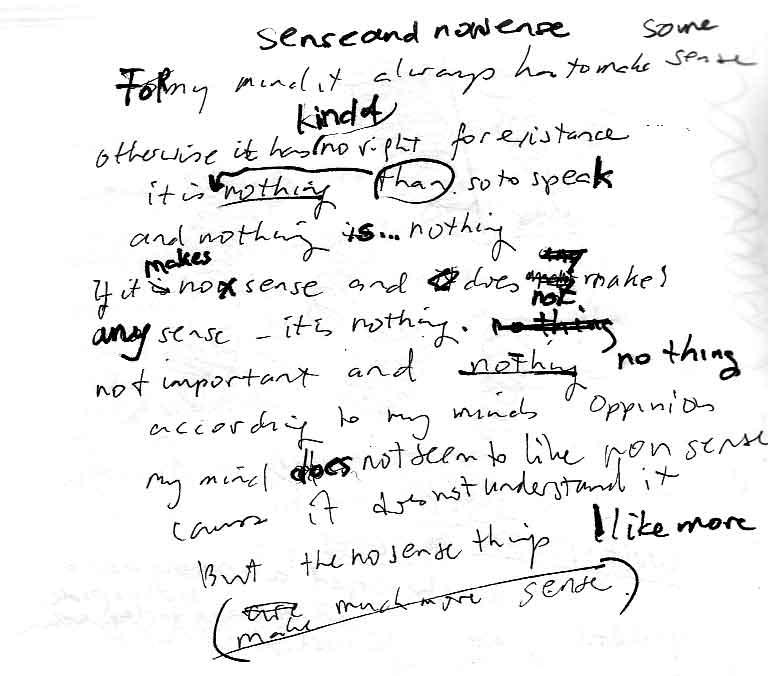 sense and nonsense some
For my mind it always has to make sense
kind of
otherwise it has no right for existance ...
it is nothing than. so to speak
and nothing is... nothing
makes
If it is no sense and it does make!
not.
any sense - it is nothing. nothing
not important and nothing no thing
according to my minds oppinion
my mind does not seem to like non sense
cause it does not understand it
But the no sense things I like more
(are
make much more sense.)